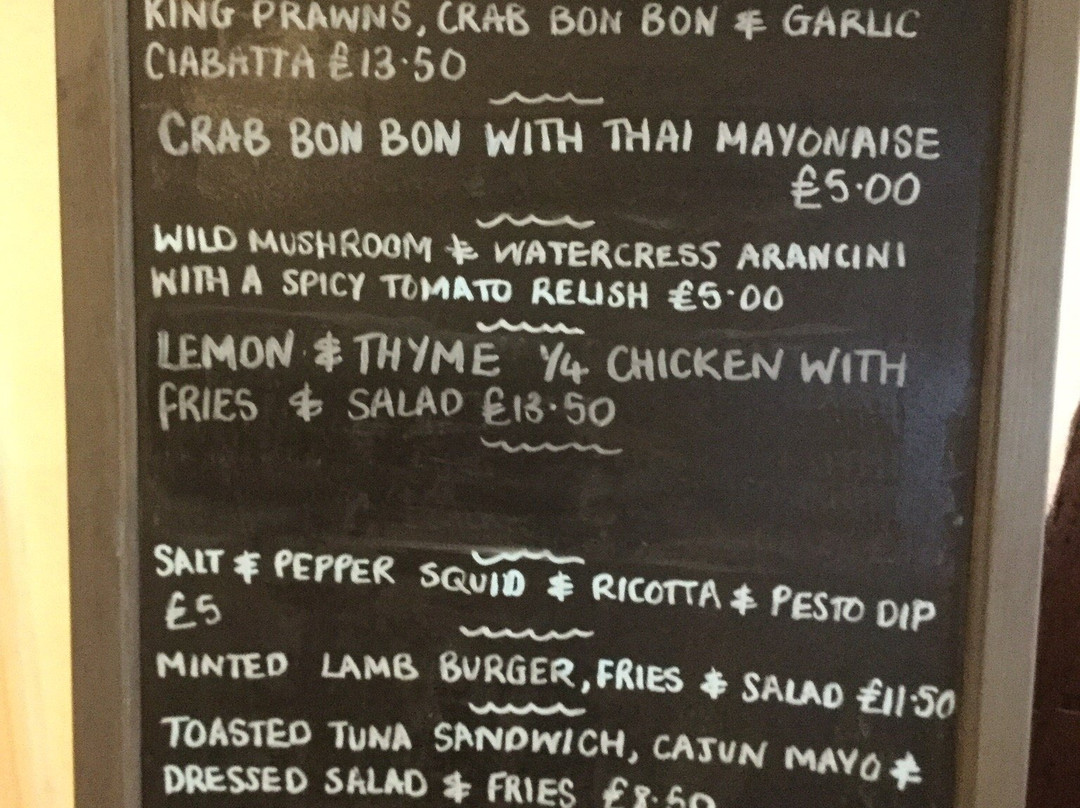 KING PRAWNS, CRAB BON BON & GARLIC
CIABATTA £13·50
CRAB BON BON WITH THAI MAYONAISE
£5·00
WILD MUSHROOM & WATERCRESS ARANCINI
WITH A SPICY TOMATO RELISH £5·00
LEMON & THYME 1/4 CHICKEN WITH
FRIES & SALAD £13·50
SALT & PEPPER SQUID & RICOTTA & PESTO DIP
£5
MINTED LAMB BURGER, FRIES & SALAD £11·50
TOASTED TUNA SANDWICH, CAJUN MAYO &
DRESSED SALAD & FRIES £8·50